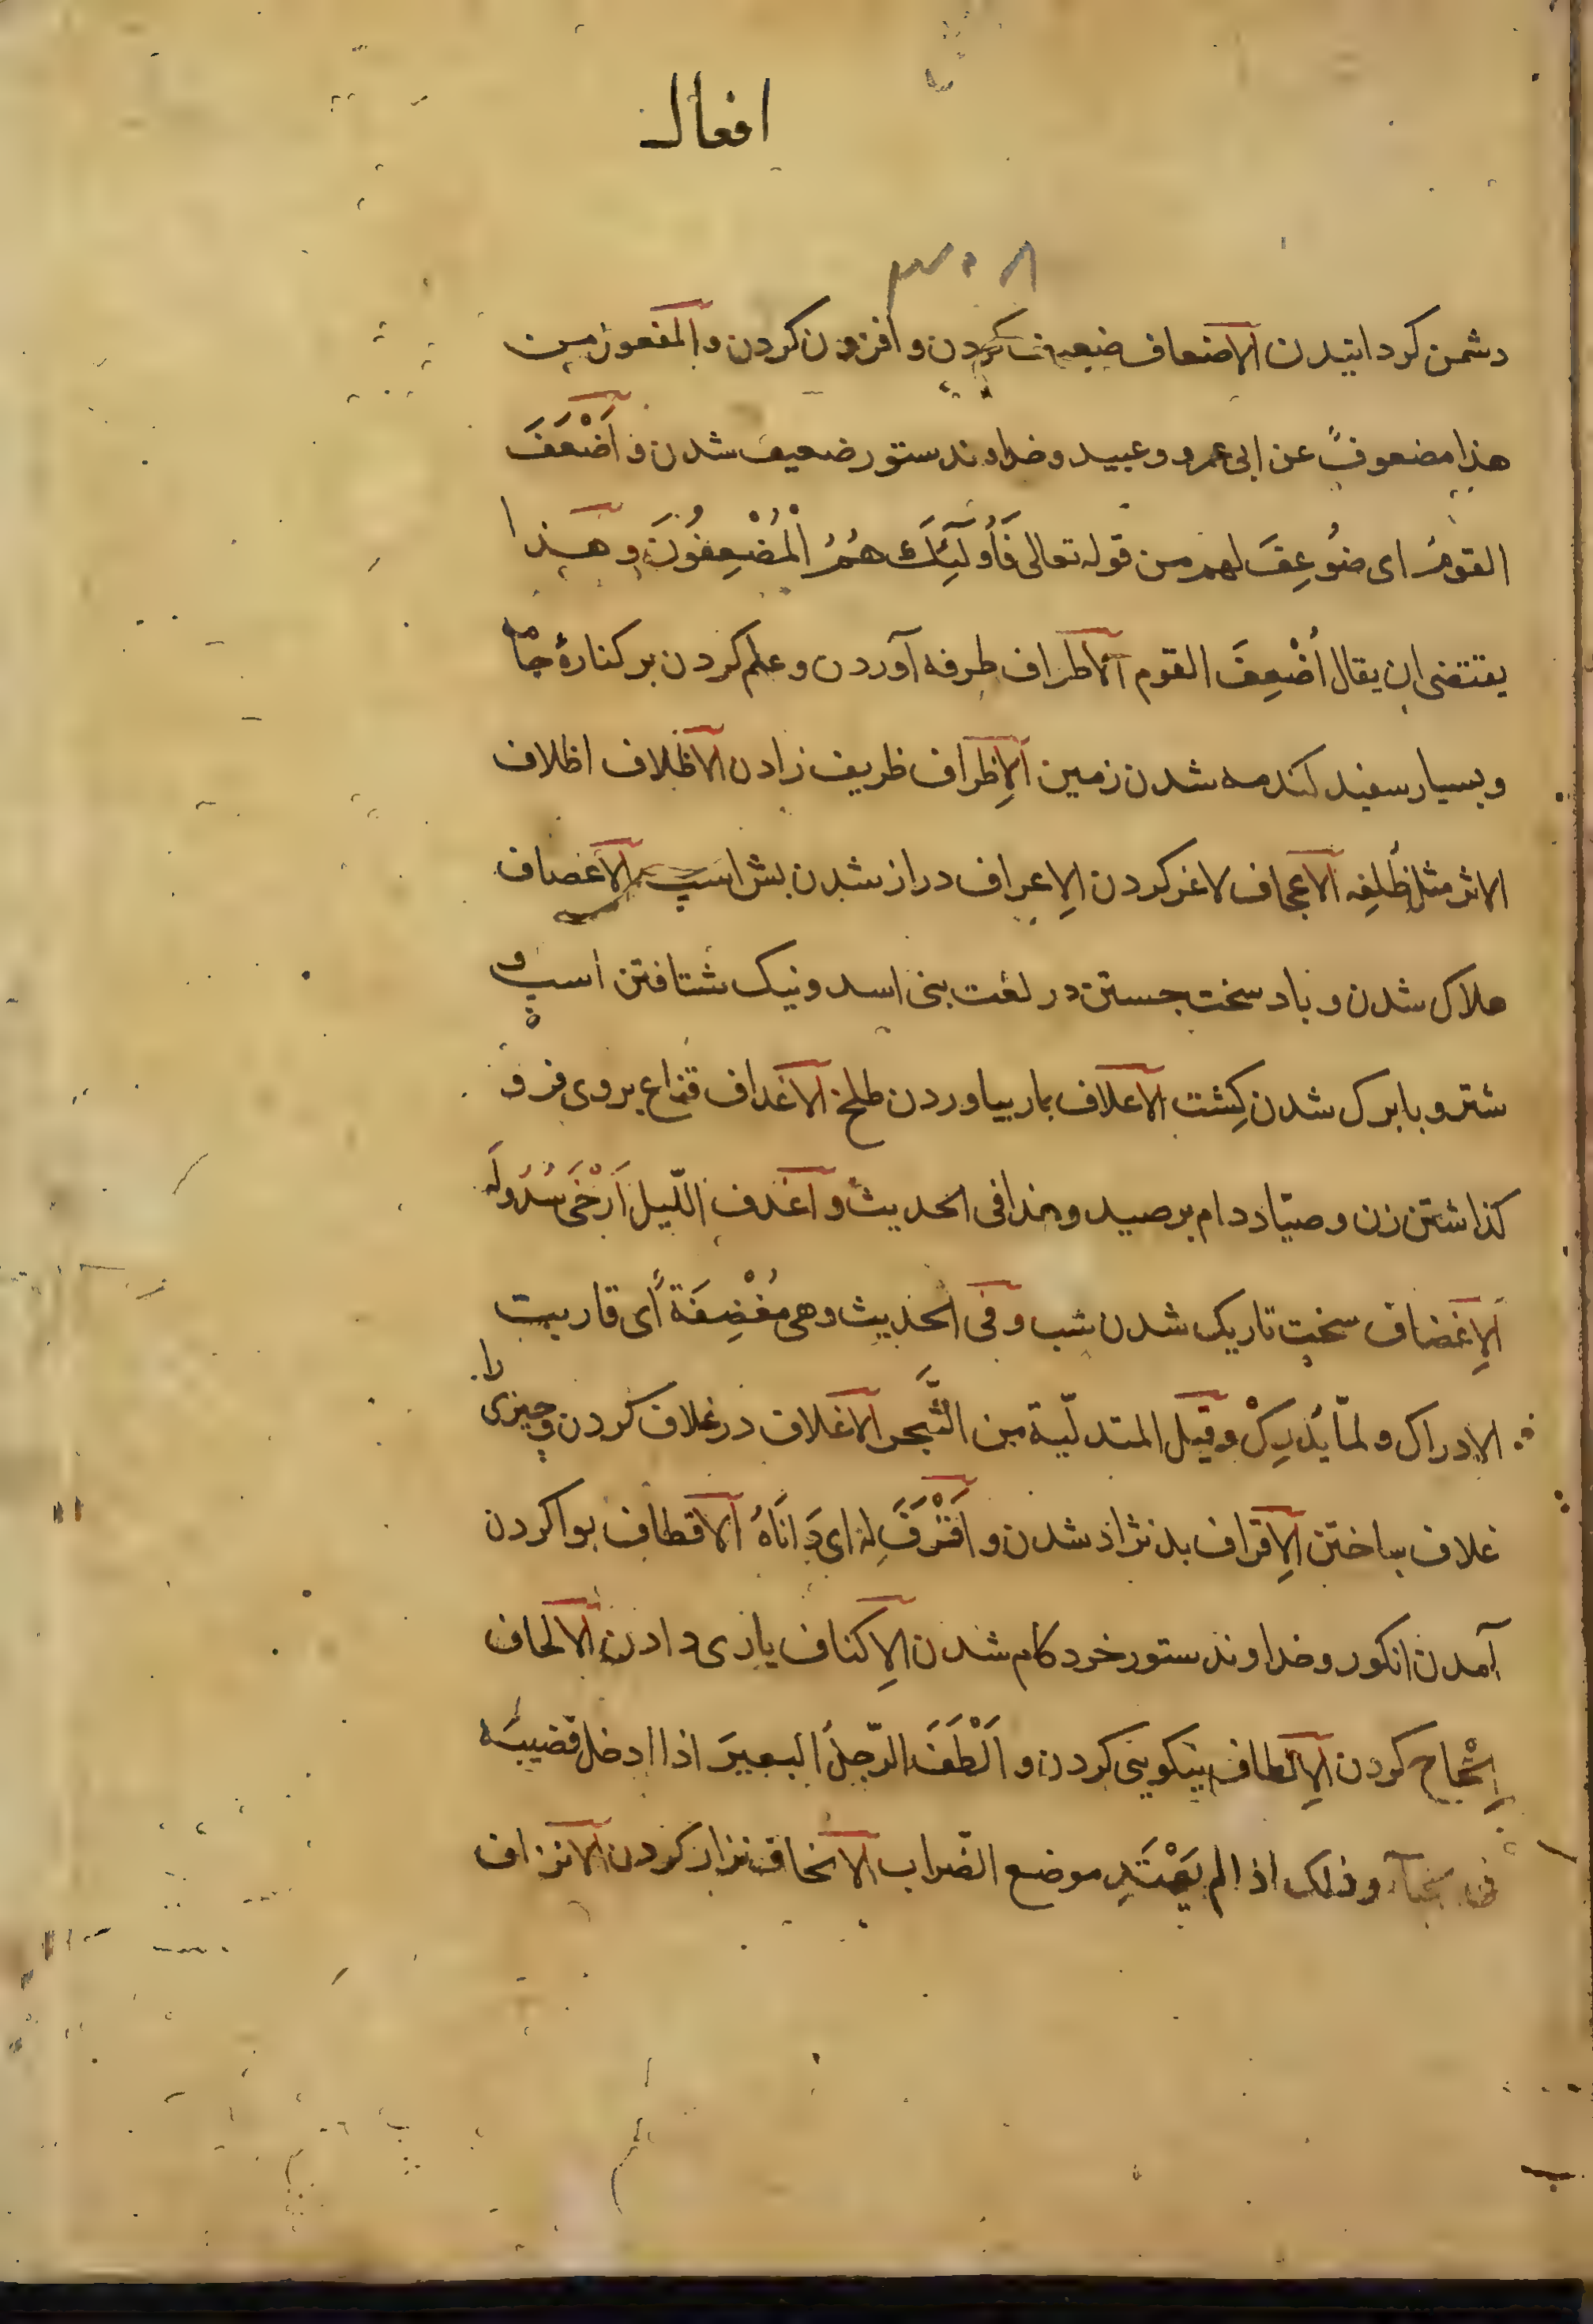 افعال
۳۰۸
دشمن کردانیدن الاضعاف ضعیف کردن و افزون کردن والمفعول من
هذا مضعوفٌ عن ابی عمرو و عبید و خداوند ستور ضعیف شدن و اَضْعَفَ
القومُ ای ضُوعِفَ لهم من قوله تعالی فَأُولَٰٓئِكَ هُمُ الْمُضْعِفُونَ و هذا
یقتضی ان یقال اُضْعِفَ القوم الاطراف طرفه آوردن و علم کردن بر کنارهٔ جامه
و بسیار سفید کندمه شدن زمین الاِظراف ظریف زادن الاظلاف اظلاف
الاثر مثل ظلفه الاعجاف لاغر کردن الاِعراف دراز شدن بش اسپ الاعصاف
هلاک شدن و باد سخت جستن در لغت بنی اسد و نیک شتافتن اسپ و
شتر و با برک شدن کِشت الاعلاف بار بیاوردن طلح الاغداف قناع بروی فرو
کذاشتن زن و صیّاد دام بر صید و هذا فی الحدیث و اغدف اللّیل اَرْخَی سُدُولَه
اَلاِغضاف سخت تاریک شدن شب و فی الحدیث و هی مُغْضِفَةٌ ای قاربت
الادراک و لمّا یُدْرِکْ و قیل المتدلّیة من الشَّجر الاغلاف در غلاف کردن و چیزی را
غلاف ساختن الاِقراف بدنژاد شدن و اَقْرَفَ له ای دَانَاهُ الاقطاف بوا کردن
آمدن انکور و خداوند ستور خرد کام شدن الاِکناف یاری دادن الالحاف
اِلْحاح کردن الاِلطاف نیکویی کردن و اَلْطَفَ الرّجلُ البعیرَ اذا ادخل قضیبَه
فی و ذلک اذا لم یَهْتَدِ موضع الضّراب الانحاف نزار کردن الانزاف